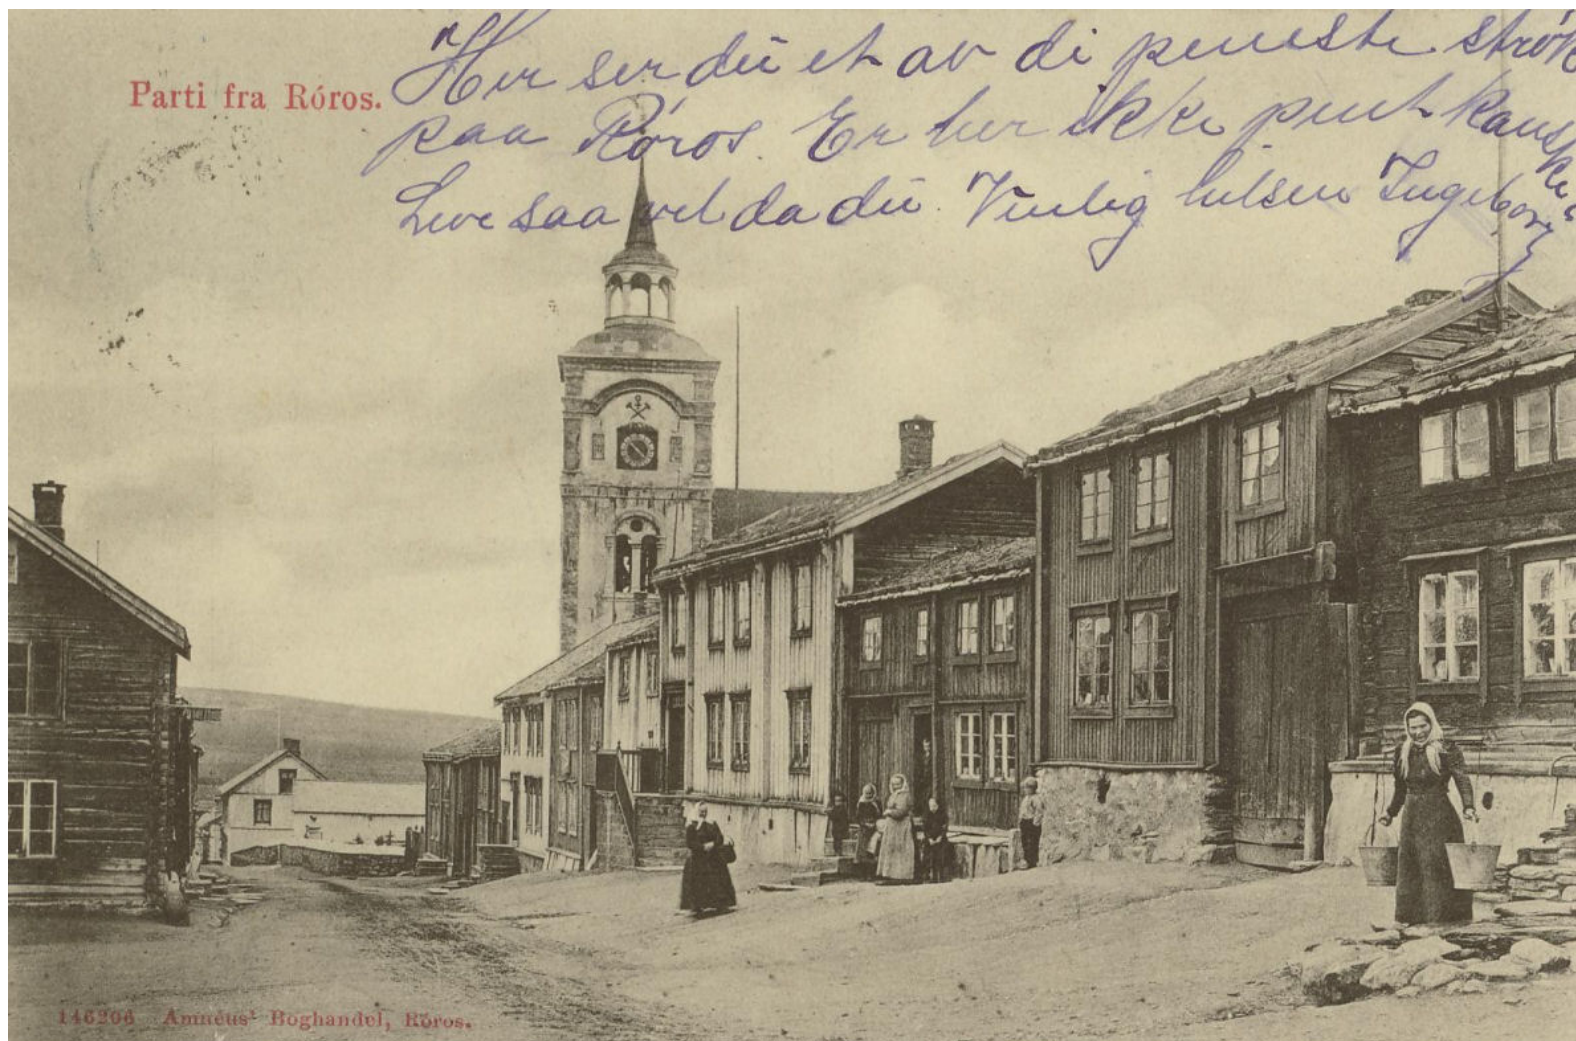 Parti fra Róros.
Her ser du et av di peneste strøk
paa Røros. Er her ikke pent kanske?
Leve saa vel da du. Venlig hilsen Ingeborg
146206 Amnéus' Boghandel, Róros.